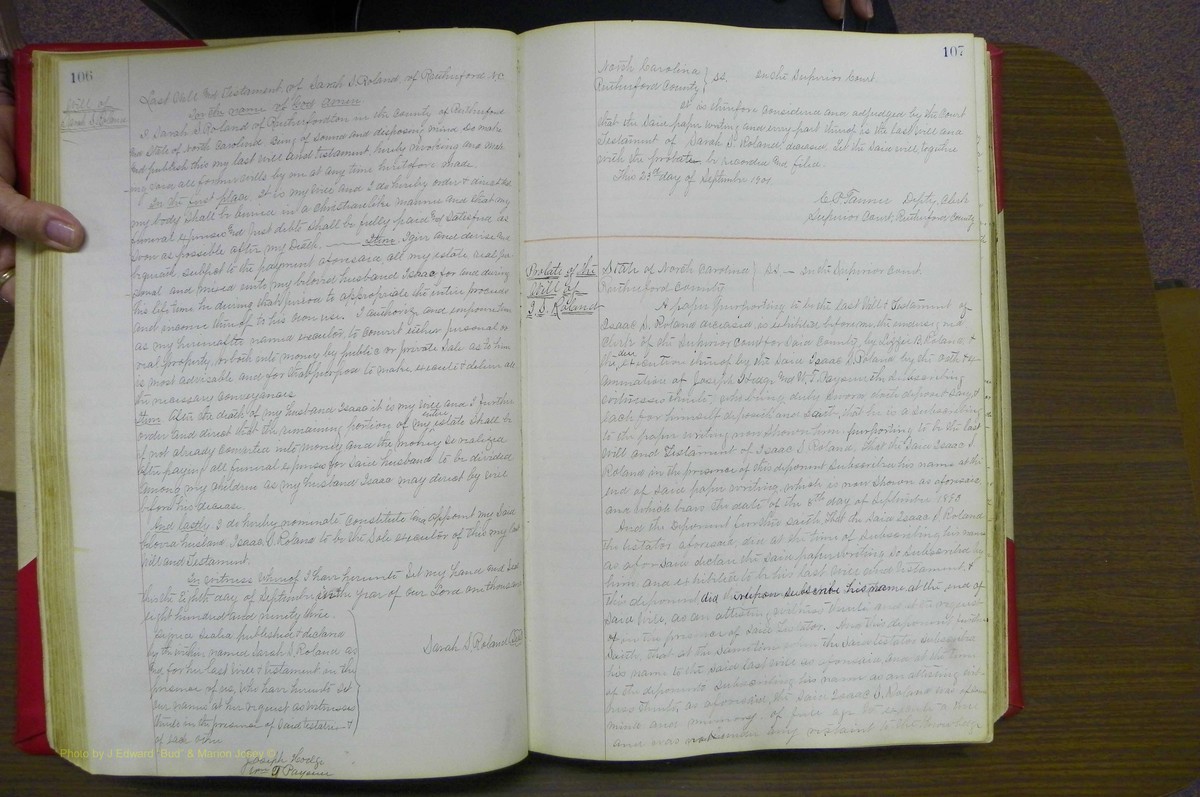 106
Will of
Sarah S. Roland
Last Will and Testament of Sarah S. Roland, of Rutherford N.C.
In the name of God Amen
I Sarah S. Roland of Rutherfordton in the County of Rutherford
and State of North Carolina being of sound and desposing mind do make
and publish this my last will and testament, hereby revoking and
my said all former wills by me at any time heretofore made.
In the first place, it is my will and I do hereby order & direct that
my body shall be buried in a christianlike manner and that my
funeral expenses and just debts shall be fully paid and satisfied as
soon as possible after my death. Item I give and devise and
bequeath, subject to the payment aforesaid, all my estate real per
sonal and mixed unto my beloved husband Isaac for and during
his life time he during that period to appropriate the entire proceeds
and income thereof to his own use. I authorize and empower him
as my hereinafter named executor, to convert either personal or
real property, or both into money by public or private sale as to him
is most advisable and for that purpose to make execute & deliver all
the necessary conveyances.
Item After the death of my husband Isaac it is my will and I further
order and direct that the remaining portion of my entire estate shall be
if not already converted into money and the money so realized
after paying all funeral expenses for said husband to be divided
among my children as my husband Isaac may direct by will
before his decease.
And lastly, I do hereby nominate constitute and appoint my said
beloved husband, Isaac S. Roland to be the sole executor of this my last
will and Testament.
In witness whereof I have hereunto set my hand and seal
this the Eighth day of September in the year of our Lord one thousand
eight hundred and ninety three.
Signed sealed published & declared
by the within named Sarah S. Roland as
and for her last will & testament in the
presence of us, who have hereunto set
our names at her request as witnesses
thereto in the presence of said testator &
of each other
Sarah S. Roland (Seal)
Joseph Hodge
W T Payseur
Photo by J Edward "Bud" & Marion Josey ©
107
North Carolina } SS. In the Superior Court.
Rutherford County
It is therefore considered and adjudged by the Court
that the said paper writing and every part thereof is the last will and
Testament of Sarah S. Roland, deceased. Let the said will, together
with the probate be recorded and filed.
This 23rd day of September 1901.
Deputy, Clerk
Superior Court, Rutherford County
Probate of the
Will of
I. S. Roland
State of North Carolina } SS - In the Superior Court.
Rutherford County
A paper purporting to be the last Will & Testament of
Isaac S. Roland deceased is exhibited before me, the undersigned
Clerk of the Superior Court for said County, by Roland &
the due execution thereof by the said Isaac S. Roland by the oath & ex
amination of Joseph Hodge and W. T. Paysur the subscribing
witnesses thereto, who being duly sworn doth depose and say, &
each for himself deposeth and saith, that he is a subscribing
to the paper writing now shown him purporting to be the last
Will and Testament of Isaac S. Roland, That the said Isaac S.
Roland in the presence of this deponent subscribed his name at the
end of said paper writing which is now shown as aforesaid
and which bears the date of the 8th day of September 1893
And the deponent further saith, That the said Isaac S. Roland
the testator aforesaid, did at the time of subscribing his name
as aforesaid declare the said paper writing so subscribed by
him and exhibited to be his last will and testament &
this deponent did thereupon subscribe his name at the end of
said Will, as an attesting witness thereto and at the request
& in the presence of said testator. And this deponent further
saith, that at the same time when the said testator subscribed
his name to the said last will as aforesaid and at the time
of the deponents subscribing his name as an attesting wit
ness thereto as aforesaid, the said Isaac S. Roland was of sound
mind and memory of full age to execute a will
and was not under any restraint to the knowledge